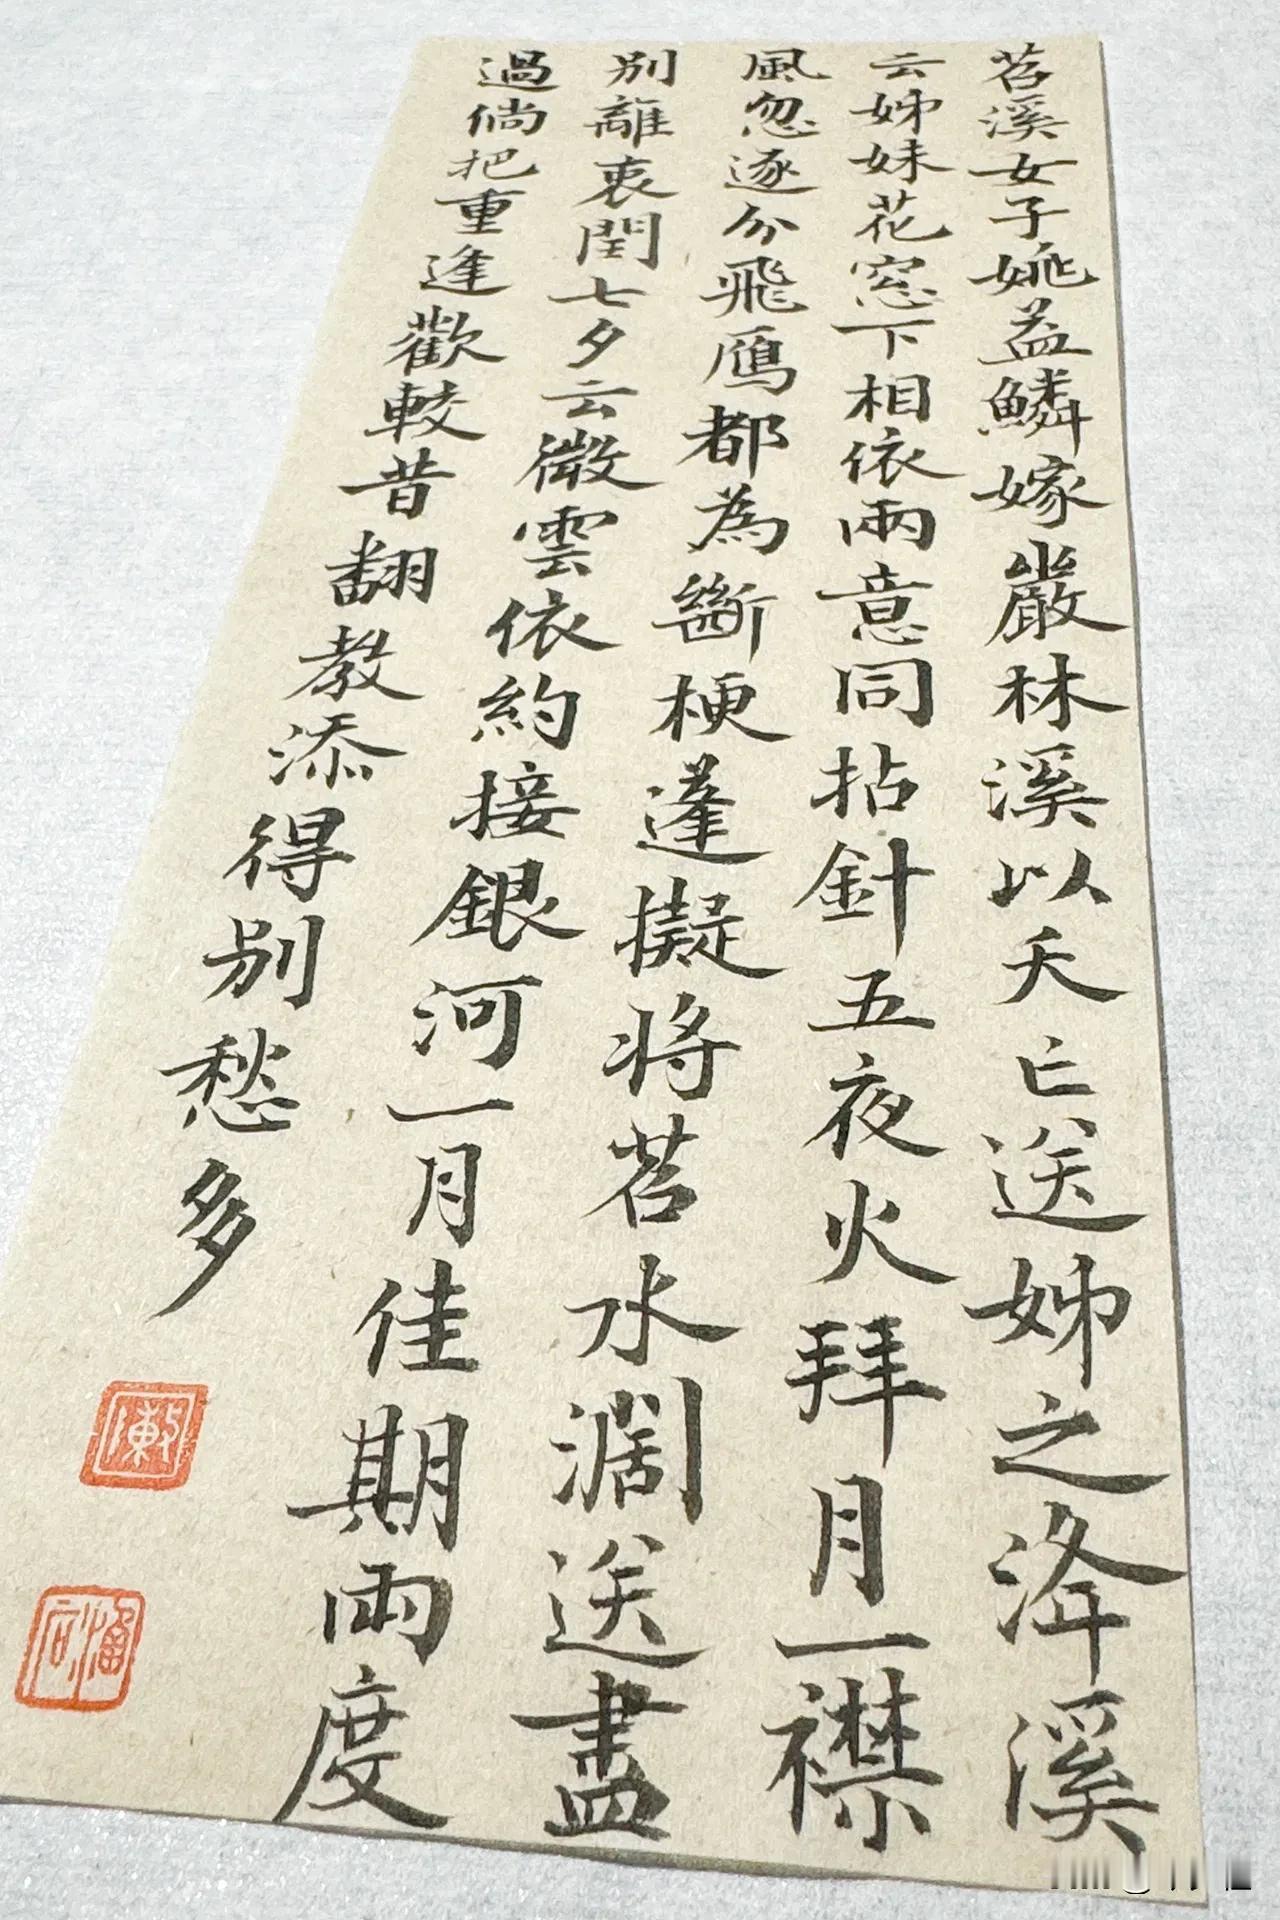 苕溪女子姚益鱗嫁嚴林溪以夭亡送姊之洚溪
云姊妹花窓下相依兩意同拈針五夜火拜月一襟
風忽逐分飛鴈都為斷梗蓬擬將苕水濶送盡
別離衷閏七夕云微雲依約接銀河一月佳期兩度
過倘把重逢歡較昔翻教添得別愁多